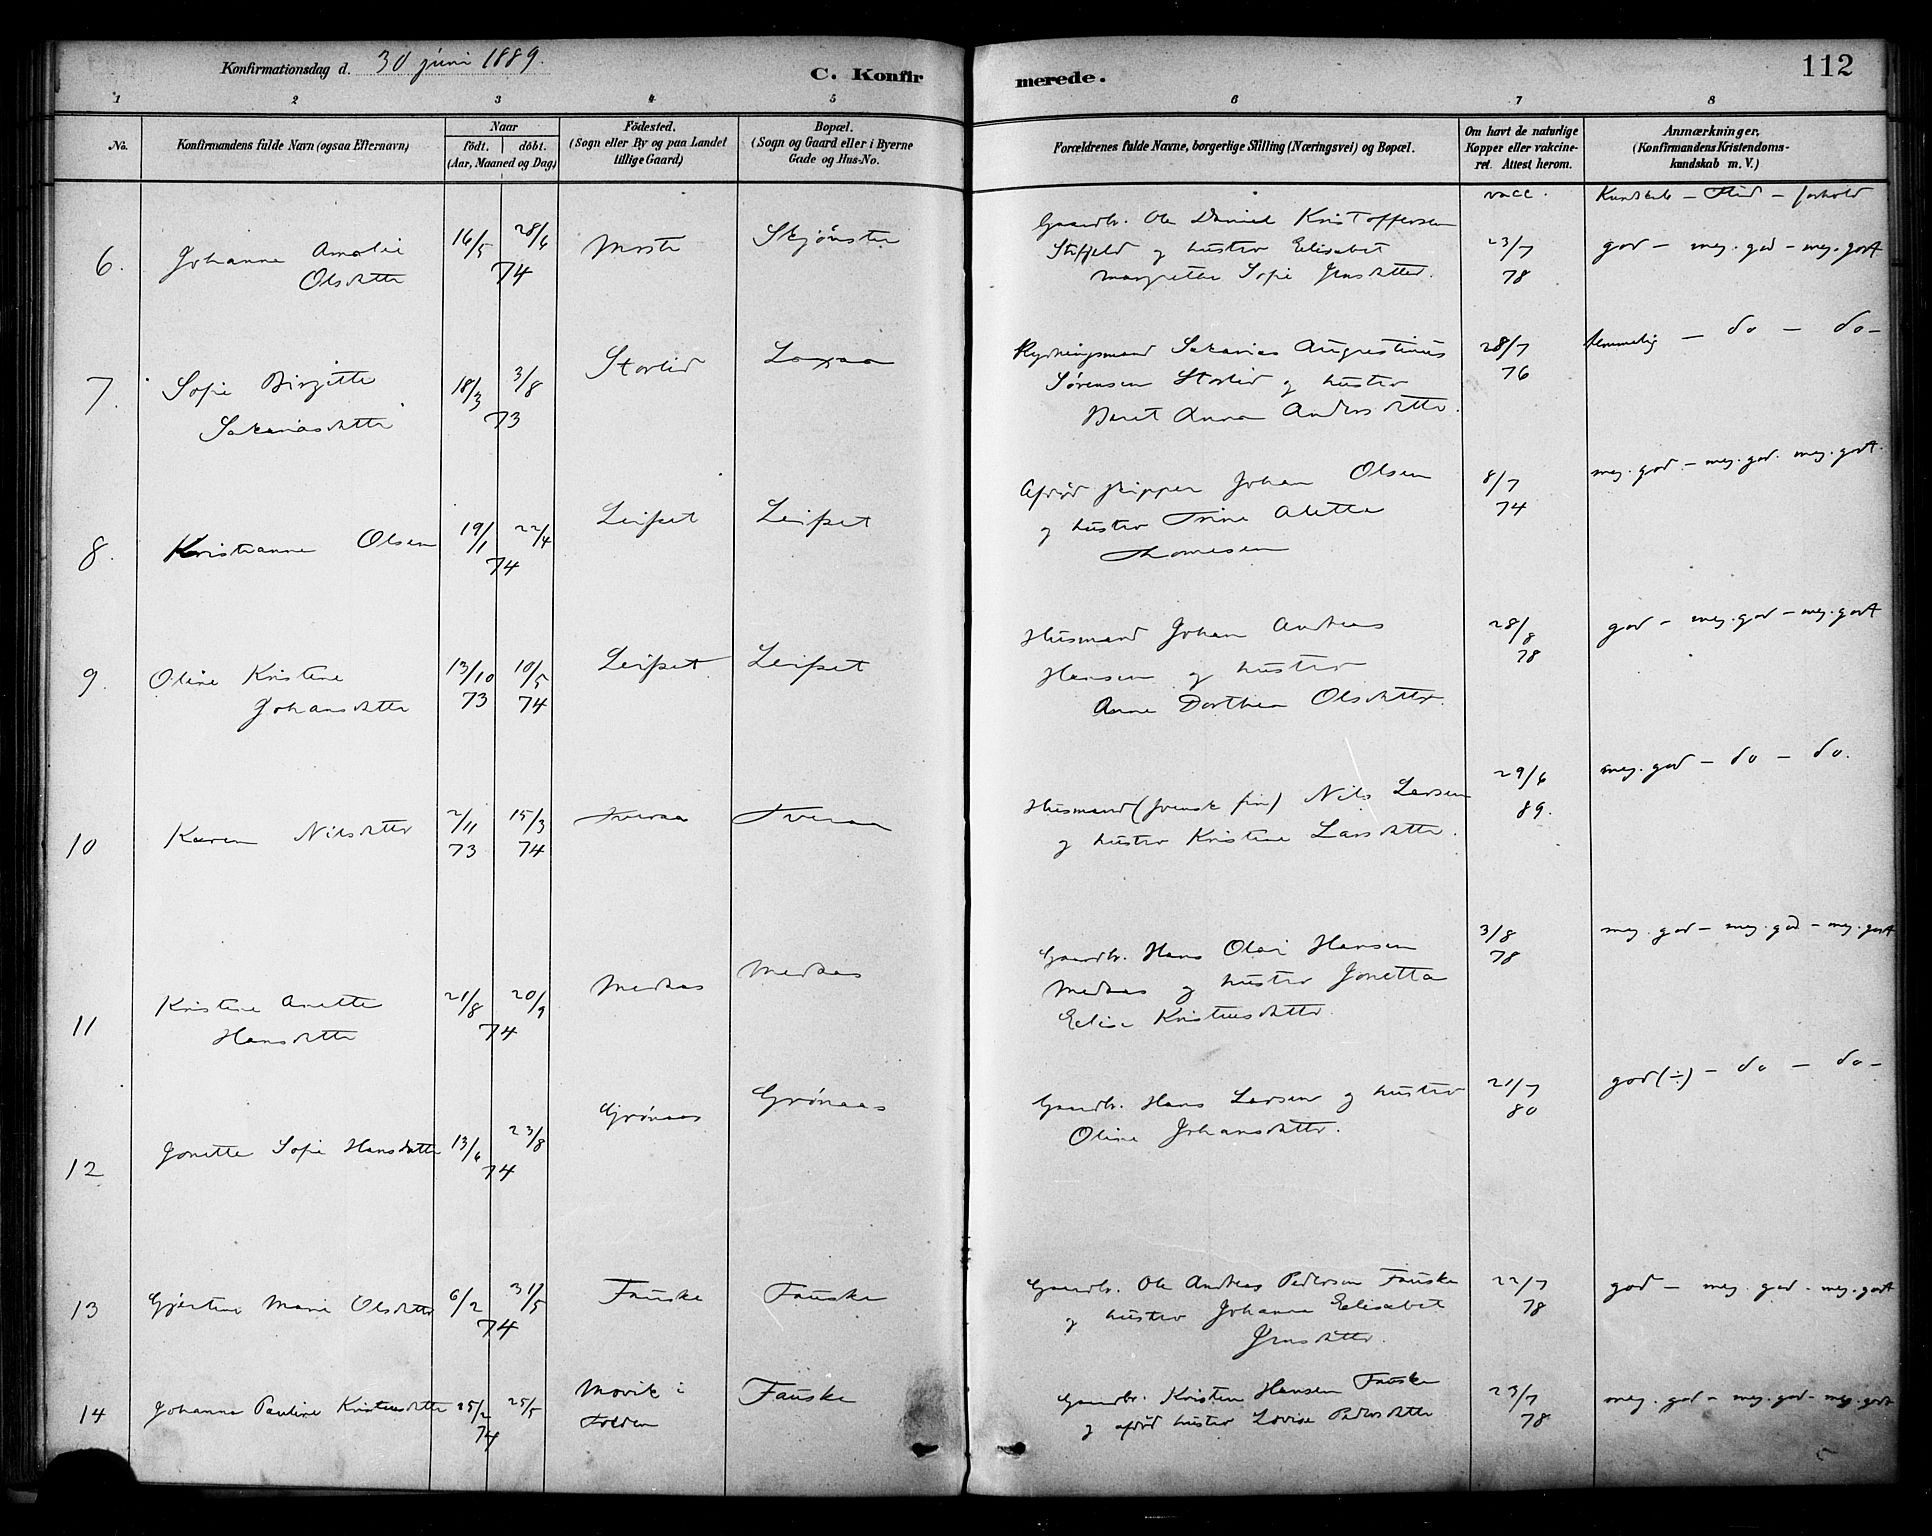 Konfirmationsdag d. 30 juni 1889.
C. Konfirmerede.
112
1 2 3 4 5 6 7 8
No.
Konfirmandens fulde Navn (ogsaa Efternavn)
Naar
födt. döbt.
(Aar, Maaned og Dag)
Födested.
(Sogn eller By og paa Landet
tillige Gaard)
Bopæl.
(Sogn og Gaard eller i Byerne
Gade og Hus-No.
Forældrenes fulde Navne, borgerlige Stilling (Næringsvei) og Bopæl.
Om havt de naturlige
Kopper eller vakcine-
ret. Attest herom.
Anmærkninger.
(Konfirmandens Kristendoms-
kundskab m. V.)
vacc. Kundskab – Flid – forhold
6. Johanne Amalie 16/5 28/6 Moste Skjønstu Gaardbr. Ole Daniel Kristoffersen 23/7 god – meg. god – meg. godt
Olsdatter 74 og hustru Elisabet 78
Margrethe Sofie Jensdatter.
7. Sofie Birgitte 18/3 3/8 Storlid Laxaa Rydningsmand Sakarias Augustinus 28/7 temmelig – do – do –
Sakariasdatter 73 Sørensen Storlid og hustru 76
Beret Anna Andersdatter.
8. Kristianne Olsen 19/1 22/4 Leifset Leifset Afdød skipper Johan Olsen 8/7 meg. god – meg. god. meg. godt.
74 og hustru Trine Aletta 74
Thomesen
9. Oline Kristine 13/10 10/5 Leifset Leifset Husmand Johan Andreas 28/8 god – meg. god – meg. godt
Johansdatter 73 74 Hansen og hustru 78
Anne Dorthea Olsdatter.
10 Karen Nilsdatter 2/11 15/3 Tveraa Tveraa Husmand (svensk fin) Nils Larsen 29/6 meg. god – do – do.
73 74 og hustru Kristine Larsdatter. 89.
11 Kristine Anette 21/8 20/9 Medaas Medaas Gaardbr. Hans Olai Hansen 3/8 meg. god – meg. god – meg. godt
Hansdatter 74 Medaas og hustru Jonetta 78
Elise Kristensdatter.
12 Jonette Sofie Hansdatter 13/6 23/8 Grønaas Grønaas Gaardbr. Hans Larsen og hustru 21/7 god (÷) – do – do –
74 Oline Johansdatter. 80
13 Gjertine Marie Olsdatter 6/2 31/5 Fauske Fauske Gaardbr. Ole Andreas Pedersen Fauske 22/7 god – meg. god – meg. godt
74 og hustru Johanna Elisabet 78
Jensdatter.
14 Johanna Pauline Kristensdatter 25/2 25/5 Movik i Fauske Gaardbr. Kristen Hansen Fauske 23/7 meg. god – meg. god – meg. godt
74 Folden og afdød hustru Lovise Pedersdatter 78